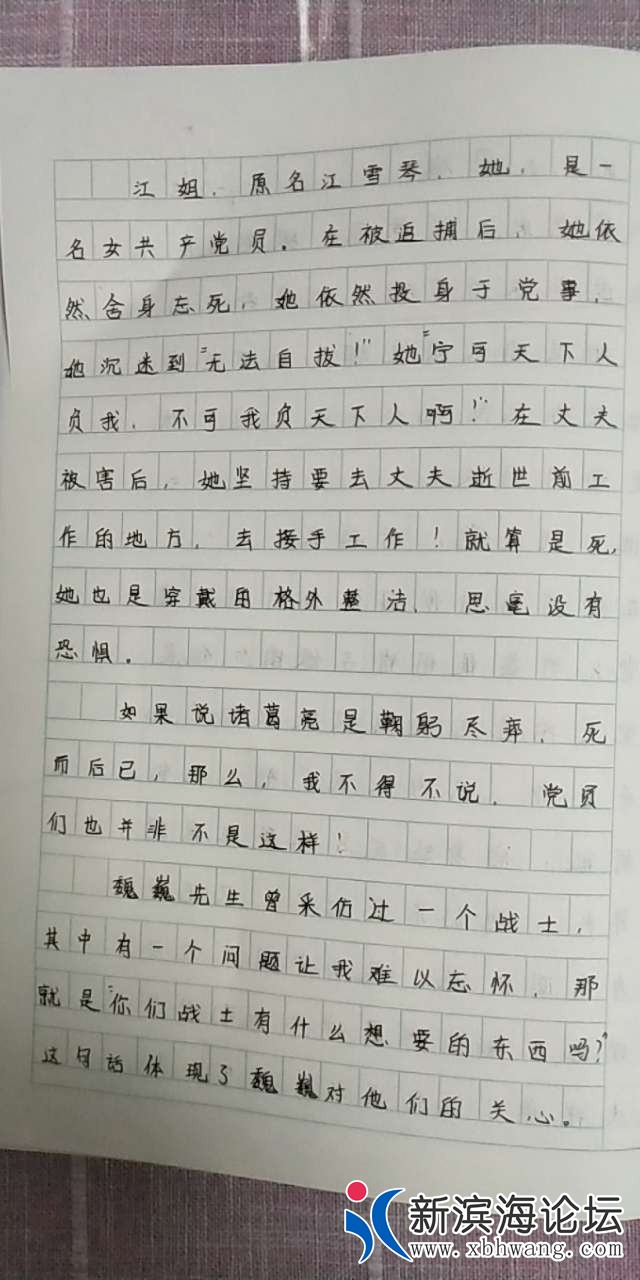 江姐，原名江雪琴，她，是一
名女共产党员。在被追捕后，她依
然舍身忘死，她依然投身于党事，
她沉迷到"无法自拔！"她"宁可天下人
负我，不可我负天下人啊！"在丈夫
被害后，她坚持要去丈夫逝世前工
作的地方，去接手工作！就算是死，
她也是穿戴的格外整洁，思毫没有
恐惧。
如果说诸葛亮是鞠躬尽瘁，死
而后已，那么，我不得不说，党员
们也并非不是这样！
魏巍先生曾采仿过一个战士，
其中有一个问题让我难以忘怀，那
就是"你们战士有什么想要的东西吗？"
这句话体现了魏巍对他们的关心。
新滨海论坛
www.xbhwang.com